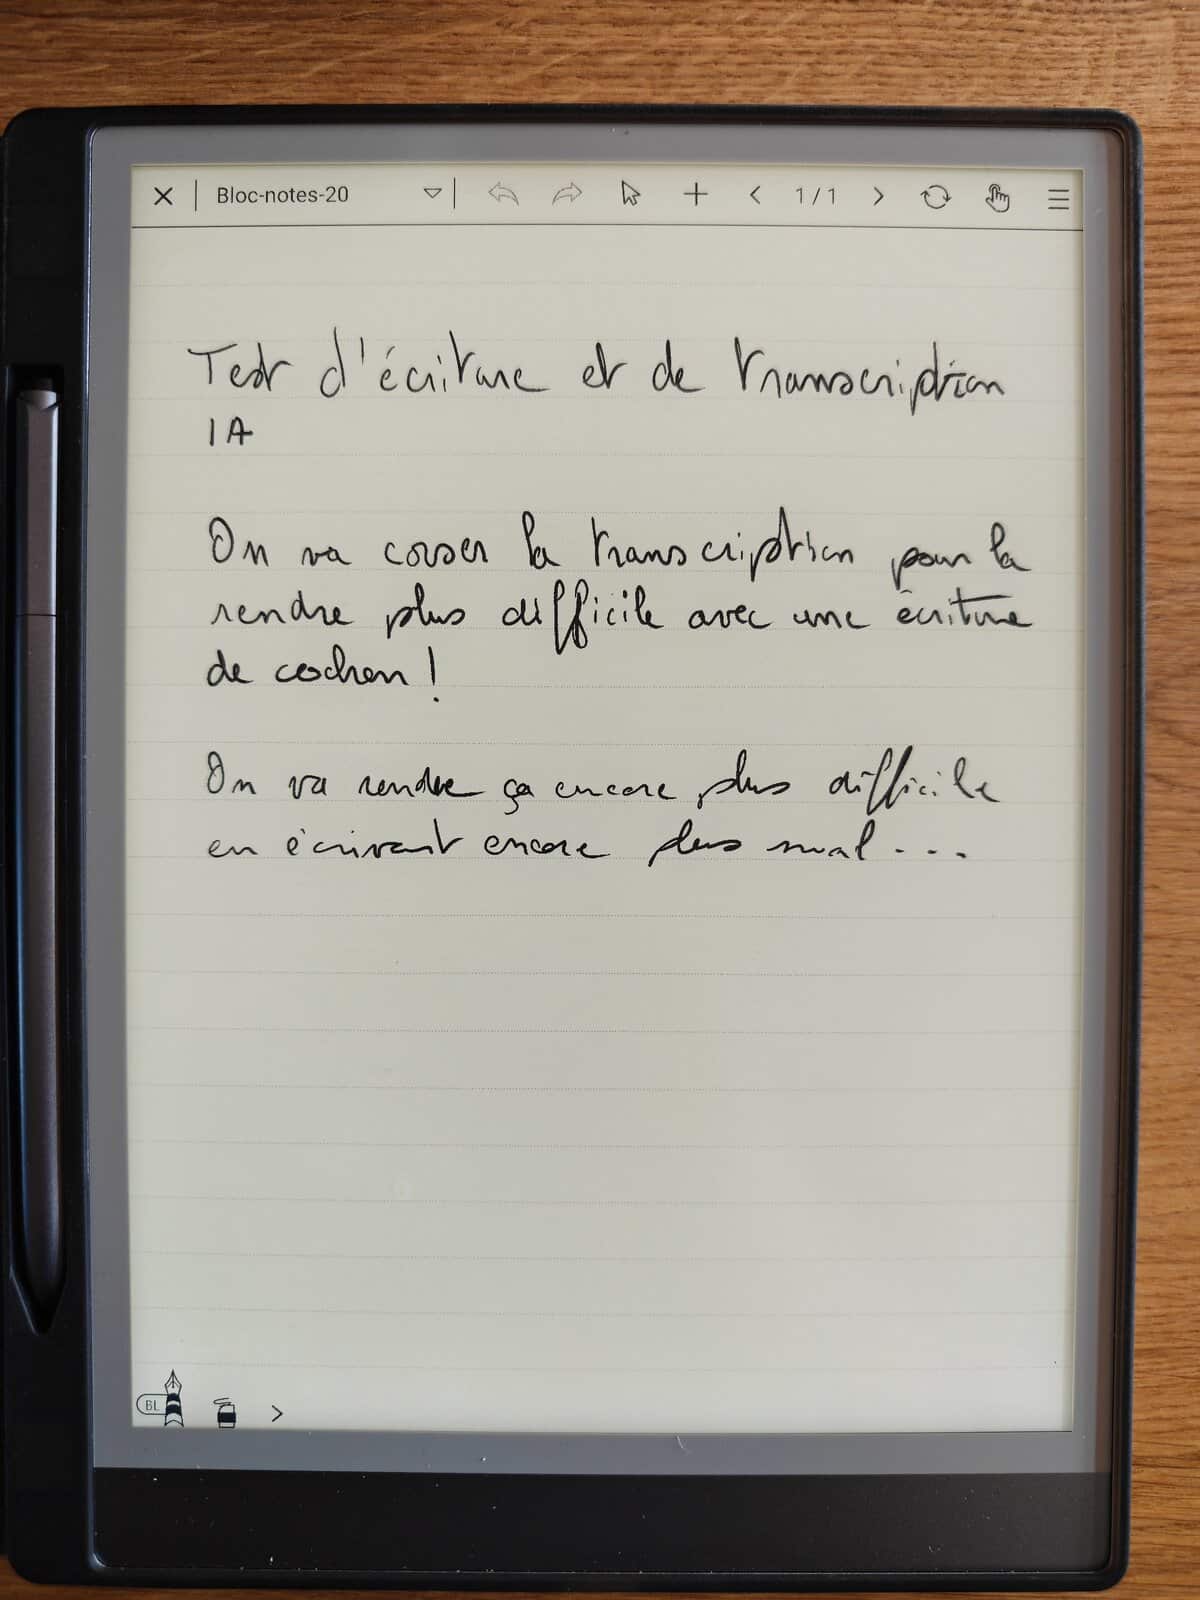 Bloc-notes-20 1/1
Test d'écriture et de transcription
IA
On va corser la transcription pour la
rendre plus difficile avec une écriture
de cochon !
On va rendre ça encore plus difficile
en écrivant encore plus mal...
BL